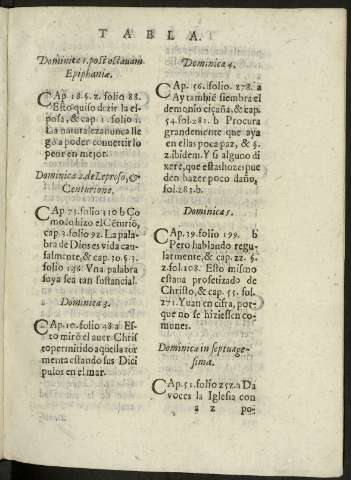 TABLA.
Dominica 1. post octauam
Epiphaniæ.
CAp. 18. §. 2. folio 88.
Esto quiso dezir la es-
posa, & cap. 1. folio 1.
La naturaleza nunca lle
gò a poder conuertir lo
peor en mejor.
Dominica 2. de Leproso, &
Centurione.
CAp. 75. folio 330 b Co
mo lo hizo el Cēturiō,
cap. 3. folio 92. La pala
bra de Dios es vida cau-
salmente, & cap. 30. §. 3.
folio 146. Vna palabra
suya sea tan sustancial.
Dominica 3.
CAp. 10. folio 48 a Es-
to miró el auer Chris
to permitido aquella tor
menta estando sus Dici
pulos en el mar.
Dominica 4.
CAp. 56. folio. 278. a
Ay tambiē siembra el
demonio cicaña. & cap.
54. fol. 281. b Procura
grandemente que aya
en ellas poca paz, & §.
2. ibidem. Y si alguno di
xere, que estas hozes pue
den hazer poco daño,
fol. 283. b.
Dominica 5.
CAp. 39. folio 199. b
Pero hablando regu-
larmente, & cap. 22. §.
2. fol. 108. Esto mismo
estaua profetizado de
Christo, & cap. 55. fol.
271. Yuan en cifra, por-
que no se hiziessen co-
munes.
Dominica in septuage-
sima.
CAp. 51. folio 252. a Da
voces la Iglesia con
a 2 po-